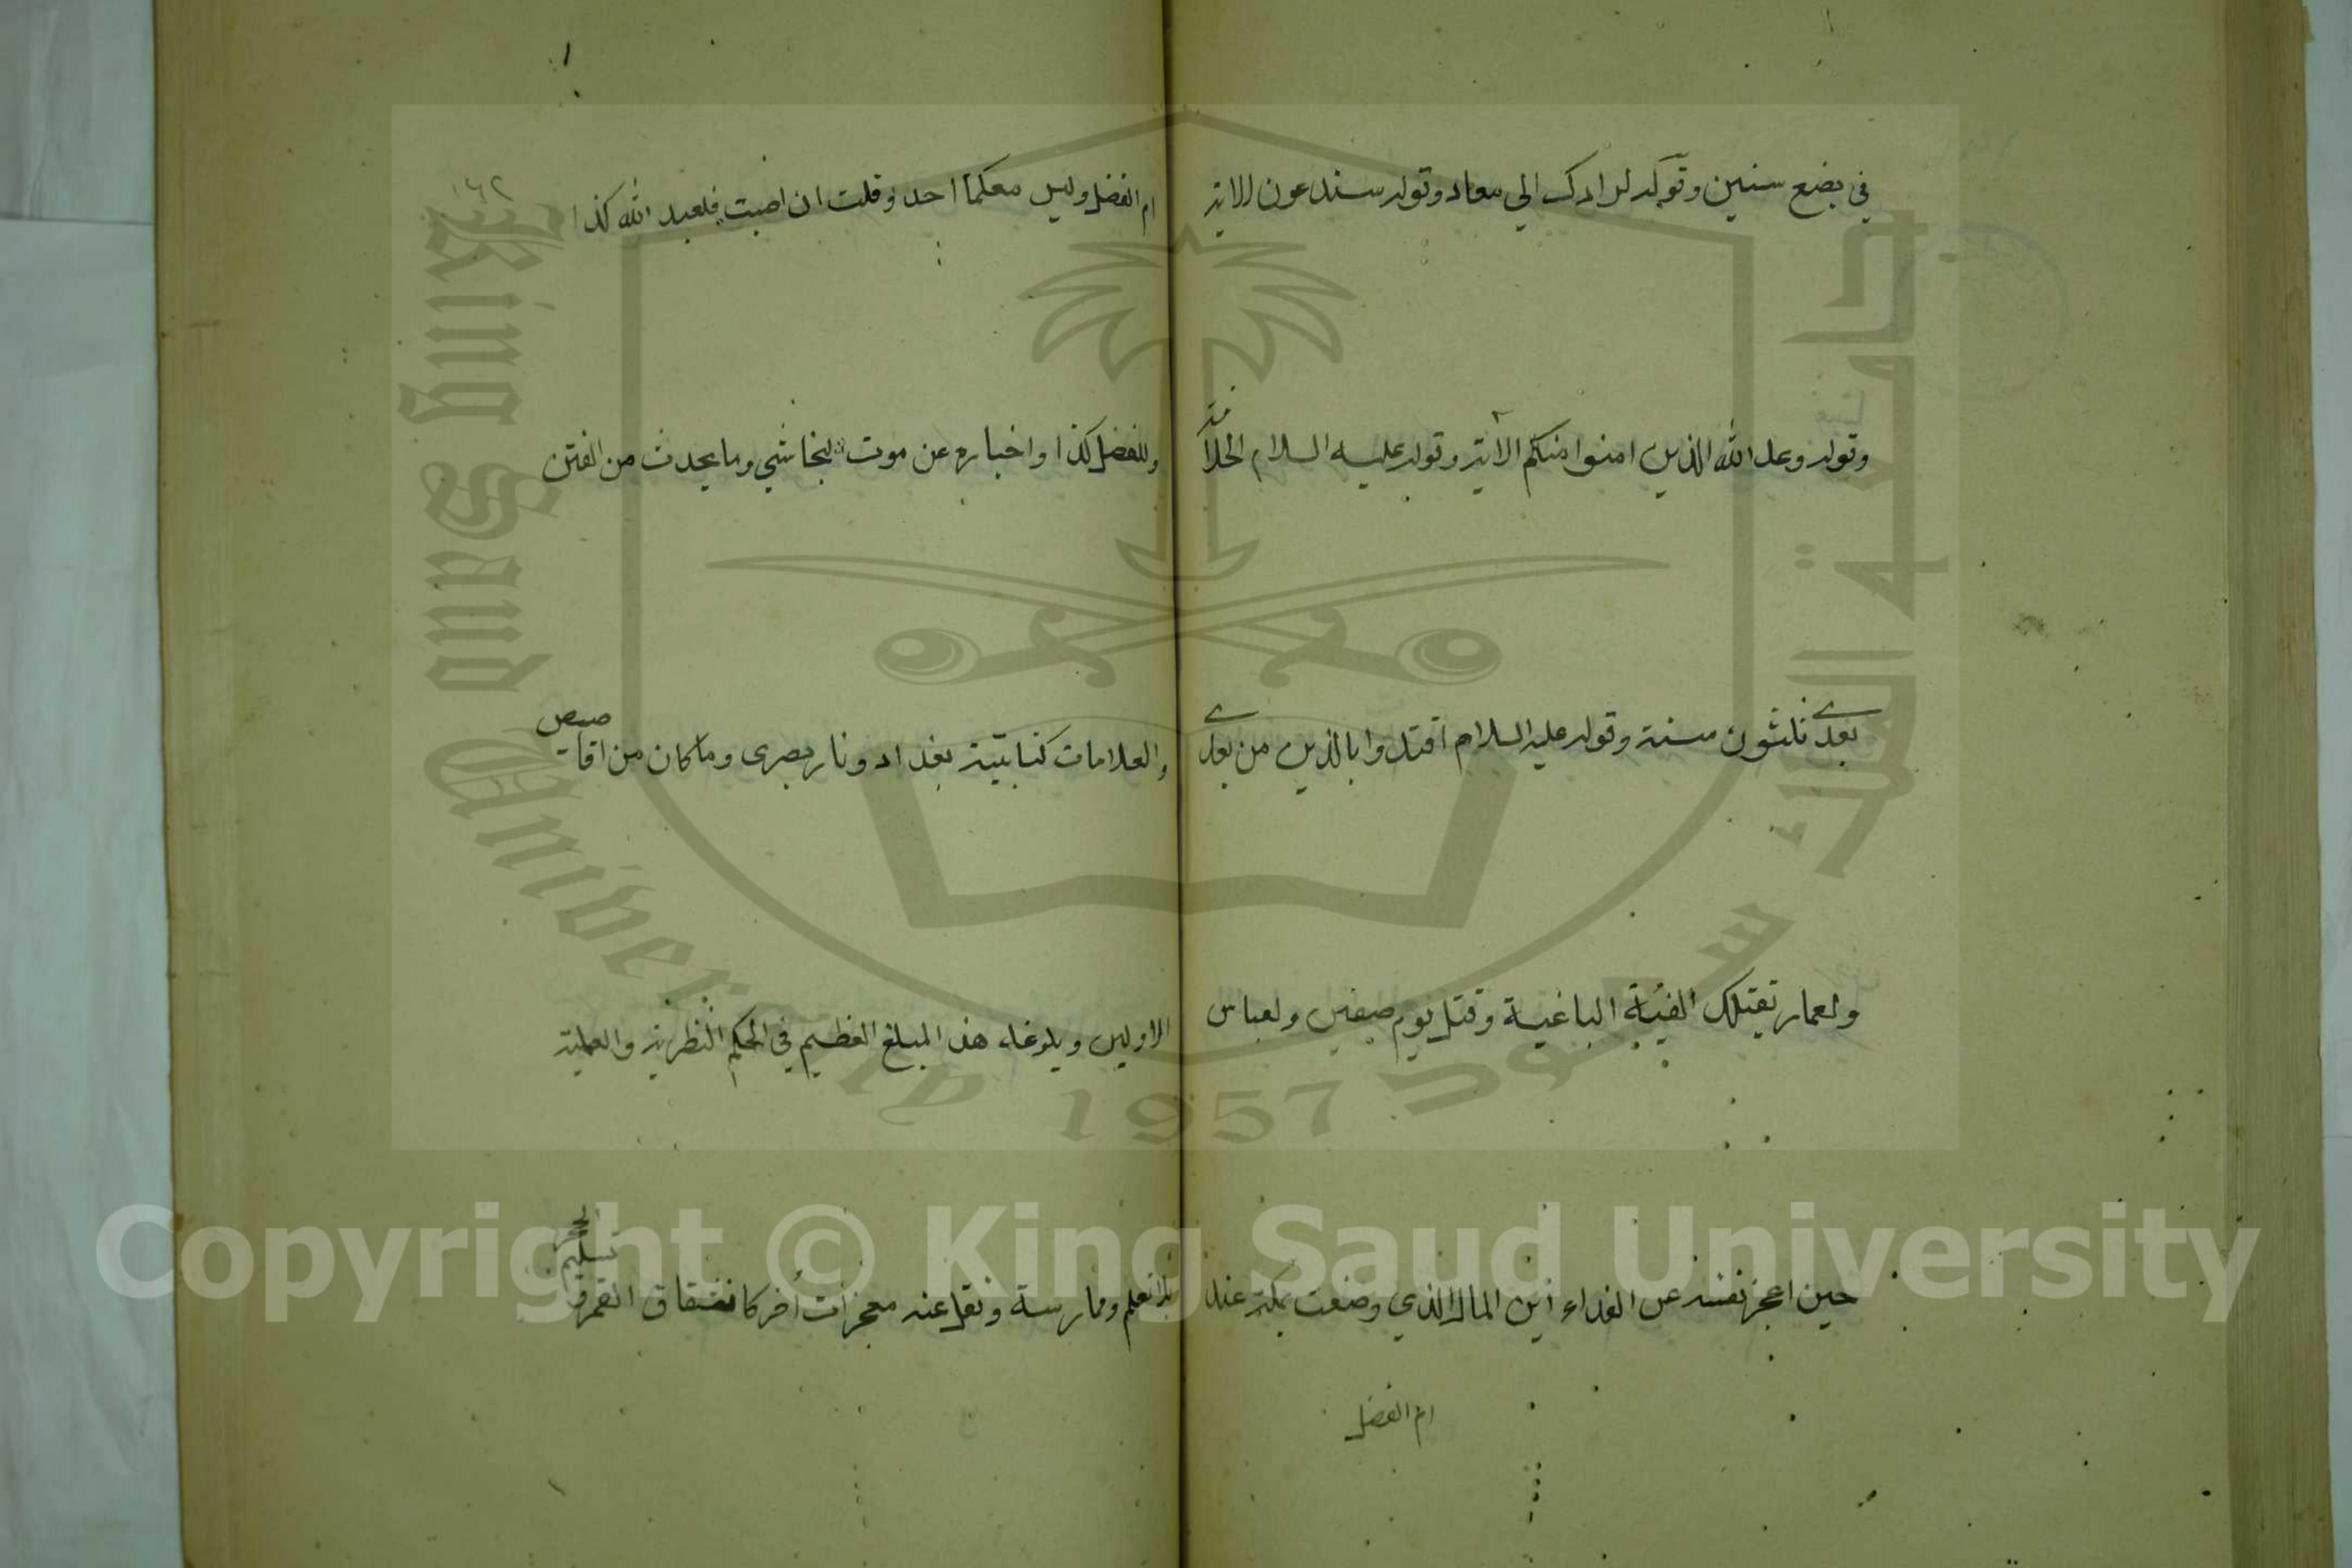 في بضع سنين وقوله لرادك الي معاد وقوله ستدعون الاية
وقوله وعد الله الذين امنوا منكم الآية وقوله عليه السلام الخلافة
بعدي ثلثون سنة وقوله عليه السلام اقتدوا بالذين من بعدي
ولعمار تقتلك الفئية الباغية وقتل يوم صفين ولعباس
حين اعجز نفسه عن الفداء أين المال الذي وضعت بمكة عند
ام الفضل
١٦٢
ام الفضل وليس معكما احد وقلت ان اصبت فلعبد الله كذا
وللفضل كذا واخباره عن موت النجاشي وما يحدث من الفتن
والعلامات كنايبة بغداد ونار بصرى وما كان من اقاصيص
الاولين وبلوغه هذا المبلغ العظيم في الحكم النظرية والعملية
بلا تعلم وممارسة ونقل عنه معجزات أخر كانشقاق القمر وتسليم الحجر
Copyright © King Saud University
King Saud University
جامعة الملك سعود
1957